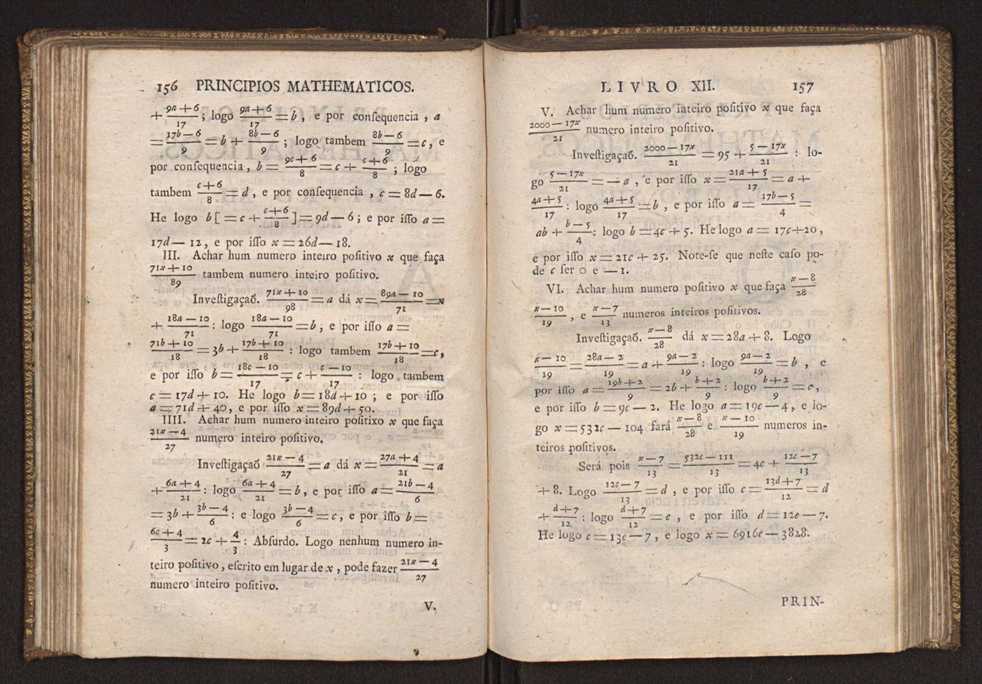 156 PRINCIPIOS MATHEMATICOS.
+ (9a+6)/17 ; logo (9a+6)/17 = b , e por conſequencia , a
= (17b−6)/9 = b + (8b−6)/9 ; logo tambem (8b−6)/9 = c, e
por conſequencia , b = (9c+6)/8 = c + (c+6)/8 ; logo
tambem (c+6)/8 = d , e por conſequencia , c = 8d — 6.
He logo b [ = c + (c+6)/8 ] = 9d — 6 ; e por iſſo a =
17d — 12 , e por iſſo x = 26d — 18.
III. Achar hum numero inteiro poſitivo x que faça
(71x+10)/89 tambem numero inteiro poſitivo.
Inveſtigaçaõ. (71x+10)/98 = a dá x = (89a—10)/71 = x
+ (18a—10)/71 : logo (18a—10)/71 = b , e por iſſo a =
(71b+10)/18 = 3b + (17b+10)/18 : logo tambem (17b+10)/18 = c,
e por iſſo b = (18c—10)/17 = c + (c—10)/17 : logo tambem
c = 17d + 10. He logo b = 18d + 10 ; e por iſſo
a = 71d + 40, e por iſſo x = 89d + 50.
IIII. Achar hum numero inteiro poſitixo x que faça
(21x—4)/27 numero inteiro poſitivo.
Inveſtigaçaõ (21x—4)/27 = a dá x = (27a+4)/21 = a
+ (6a+4)/21 : logo (6a+4)/21 = b , e por iſſo a = (21b—4)/6
= 3b + (3b—4)/6 : e logo (3b—4)/6 = c , e por iſſo b =
(6c+4)/3 = 2c + 4/3 : Abſurdo. Logo nenhum numero in-
teiro poſitivo , eſcrito em lugar de x , pode fazer (21x—4)/27
numero inteiro poſitivo.
V.
LIVRO XII. 157
V. Achar hum numero inteiro poſitivo x que faça
(2000—17x)/21 numero inteiro poſitivo.
Inveſtigaçaõ. (2000—17x)/21 = 95 + (5—17x)/21 : lo-
go (5—17x)/21 = — a , e por iſſo x = (21a+5)/17 = a +
(4a+5)/17 : logo (4a+5)/17 = b , e por iſſo a = (17b—5)/4 =
4b + (b—5)/4 : logo b = 4c + 5. He logo a = 17c+20,
e por iſſo x = 21c + 25. Note-ſe que neſte caſo po-
de c ſer 0 e — 1.
VI. Achar hum numero poſitivo x que faça (x—8)/28
(x—10)/19 , e (x—7)/13 numeros inteiros poſitivos.
Inveſtigaçaõ. (x—8)/28 dá x = 28a + 8. Logo
(x—10)/19 = (28a—2)/19 = a + (9a—2)/19 : logo (9a—2)/19 = b , e
por iſſo a = (19b+2)/9 = 2b + (b+2)/9 : logo (b+2)/9 = c,
e por iſſo b = 9c — 2. He logo a = 19c — 4 , e lo-
go x = 532c — 104 fará (x—8)/28 e (x—10)/19 numeros in-
teiros poſitivos.
Será pois (x—7)/13 = (532c—111)/13 = 4c + (12c—7)/13
+ 8. Logo (12c—7)/13 = d , e por iſſo c = (13d+7)/12 = d
+ (d+7)/12 : logo (d+7)/12 = e , e por iſſo d = 12e — 7.
He logo c = 13e — 7 , e logo x = 6916e — 3828.
PRIN-